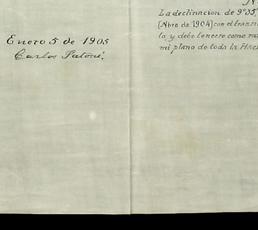 Enero 5 de 1905
Carlos Patoni.
N
La declinacion de 9°35'
(Nbre de 1904) con el transi
la y debe tenerse como me
mi plano de toda la Hac